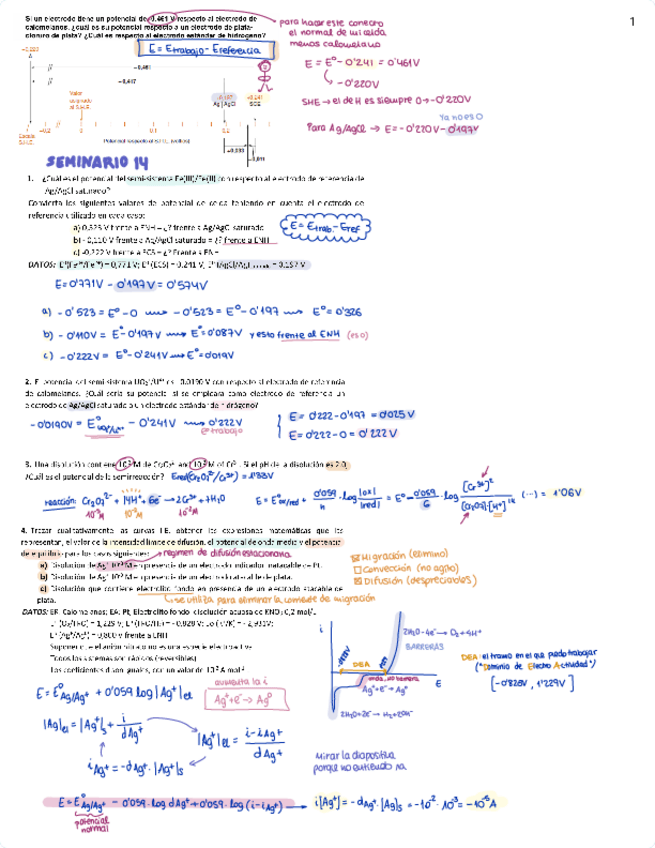 1
Si un electrodo tiene un potencial de -0,461 V respecto al electrodo de
calomelanos, ¿cuál es su potencial respecto a un electrodo de plata-
cloruro de plata? ¿Cuál es respecto al electrodo estándar de hidrógeno?
E = Etrabajo - Ereferencia
para hacer este cambio
el normal de mi celda
menos calomelano
E = E° - 0'241 = 0'461V
-0'220V
SHE → el de H es siempre 0 → -0'220V
Ya no es 0
Para Ag/AgCl → E = -0'220V - 0'197V
-0,461
-0,417
Valor
al S.H.E.
Ag | AgCl
SCE
Escala
S.H.E.
-0,2
0
0,1
0,2
SEMINARIO 14
1. ¿Cuál es el potencial del semi-sistema Fe(III)/Fe(II) con respecto al electrodo de referencia de
Ag/AgCl saturado?
Convierta los siguientes valores de potencial de celda teniendo en cuenta el electrodo de
referencia utilizado en cada caso:
E = Etrab. - Eref
a) 0,523 V frente a ENH = ¿? frente a Ag/AgCl saturado
b) - 0,110 V frente a Ag/AgCl saturado = ¿? frente a ENH
c) -0,222 V frente a ECS = ¿? frente a ENH
DATOS: = 0,771 V; E° (ECS) = 0.241 V; = 0.197 V
E = 0'771V - 0'197V = 0'574V
a) -0'523 = E° - 0 → -0'523 = E° - 0'197 → E° = 0'326
b) -0'110V = E° - 0'197V → E° = 0'087V y esto frente al ENH (eso)
c) -0'222V = E° - 0'241V → E° = 0'019V
2. El potencial del semi sistema es -0.0190 V con respecto al electrodo de referencia
de calomelanos. ¿Cuál sería su potencial si se empleara como electrodo de referencia un
electrodo de Ag/AgCl saturado o un electrodo estándar de hidrógeno?
-0'0190V = E° - 0'241V → 0'222V
E° trabajo
E = 0'222 - 0'197 = 0'025V
E = 0'222 - 0 = 0'222V
3. Una disolución contiene M de y M de Si el pH de la disolución es 2,0,
¿Cuál es el potencial de la semirreacción? Ered(Cr2O7²⁻/Cr³⁺) = 1'33V
reacción: Cr2O7²⁻ + 14H⁺ + 6e⁻ → 2Cr³⁺ + 7H2O
E = E°ox/red + 0'059/n · log |ox|/|red| = E° - 0'059/6 · log [Cr³⁺]²/[Cr2O7²⁻][H⁺]¹⁴ (...) = 1'06V
4. Trazar cualitativamente las curvas I-E, obtener las expresiones matemáticas que las
representan, el valor de la intensidad límite de difusión, el potencial de onda media y el potencial
de equilibrio para los casos siguientes: régimen de difusión estacionaria.
a) Disolución de Ag⁺ 10⁻³ M en presencia de un electrodo indicador inatacable de Pt.
b) Disolución de Ag⁺ 10⁻³ M en presencia de un electrodo atacable de plata.
c) Disolución que contiene electrolito fondo en presencia de un electrodo atacable de
plata.
se utiliza para eliminar la corriente de migración
Migración (elimino)
Convección (no agito)
Difusión (despreciables)
DATOS: ER: Calomelanos; EA: Pt; Electrolito fondo: disolución acuosa de KNO₃ 0,2 mol/L.
E° (Ag⁺/Ag°) = 0,800 V frente a ENH
Todos los sistemas son rápidos (reversibles)
i
2H2O - 4e⁻ → O2 + 4H⁺
BARRERAS
DEA
E
Ag⁺ + e⁻ → Ag°
2H2O + 2e⁻ → H2 + 2OH⁻
DEA: el tramo en el que puedo trabajar
("Dominio de Electro Actividad")
[-0'828V, 1'229V]
E = E°Ag/Ag⁺ + 0'059 log |Ag⁺|el
aumenta la i
Ag⁺ + e⁻ → Ag°
|Ag⁺|el = |Ag⁺|s + i/dAg⁺
|Ag⁺|el = i - iAg⁺/dAg⁺
iAg⁺ = -dAg⁺ · |Ag⁺|s
Mirar la diapositiva
porque no entiendo na
E = E°Ag/Ag⁺ - 0'059 · log dAg⁺ + 0'059 · log (i - iAg⁺) → i[Ag⁺] = -dAg⁺ · |Ag|s = -10⁻² · 10⁻³ = -10⁻⁵ A
potencial
normal